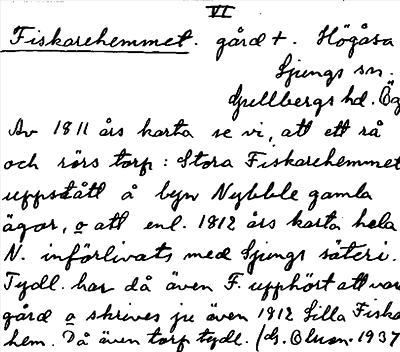 VI
Fiskarehemmet. gård +. Högåsa
Ljungs sn.
Gullbergs hd. Ög
Av 1811 års karta se vi, att ett rå
och rörs torp: Stora Fiskarehemmet
uppstått å byn Nybble gamla
ägor, o att enl. 1812 års karta hela
N. införlivats med Ljungs säteri.
Tydl. har då även F. upphört att vara
gård o skrives ju även 1912 Lilla Fiska
hem. Då även torp tydl. (G. Olsson 1937